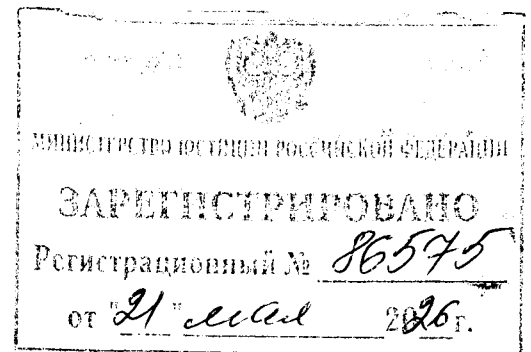 МИНИСТЕРСТВО ЮСТИЦИИ РОССИЙСКОЙ ФЕДЕРАЦИИ
ЗАРЕГИСТРИРОВАНО
Регистрационный № 86575
от "21" мая 2026 г.